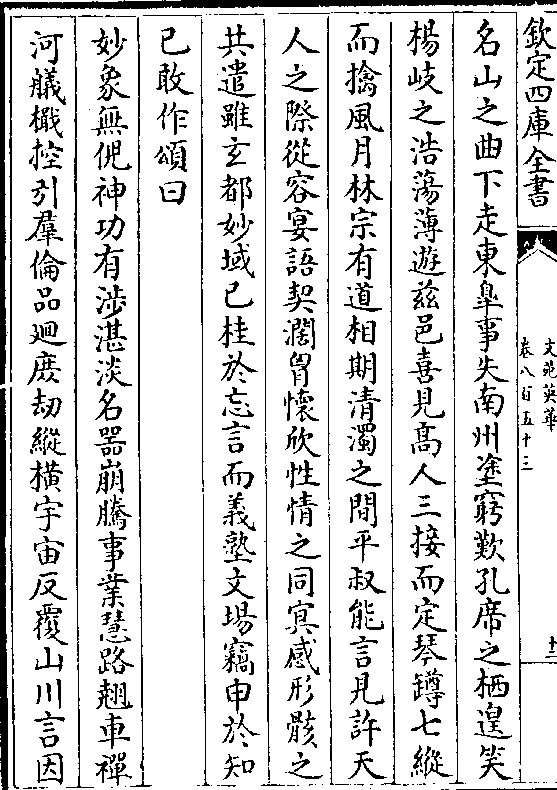 欽定四庫全書
文苑英華
卷八百五十三
十二
名山之曲下走東臯事失南州塗窮歎孔席之栖遑笑
楊岐之浩蕩薄遊兹邑喜見髙人三接而定琴罇七縱
而擒風月林宗有道相期清濁之間平叔能言見許天
人之際從容宴語契濶胷懐欣性情之同㝠感形骸之
共遣雖玄都妙域已桂於忘言而義塾文場竊申於知
已敢作頌曰
妙象無俔神功有渉湛淡名器崩騰事業慧路翹車禪
河艤檝控引羣倫品廻庶劫縱横宇宙反覆山川言因